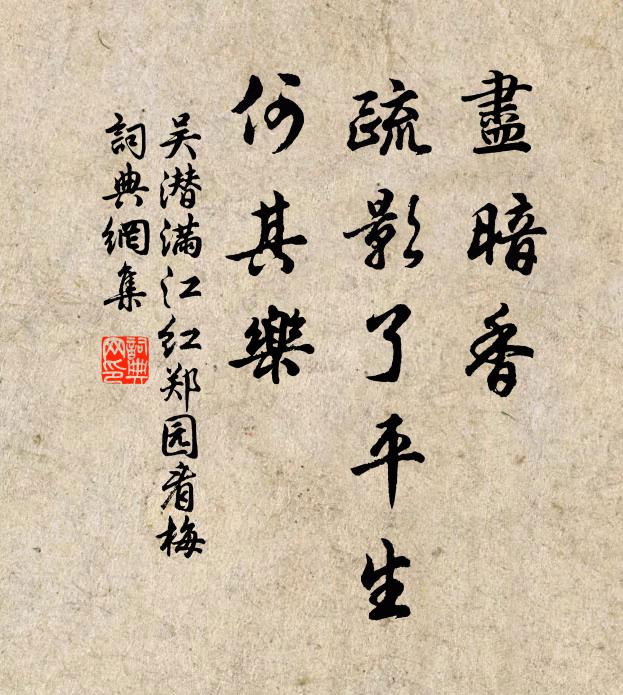 盡暗香
疏影了平生
何其樂
吴潜满江红郑园看梅
詞典網集
詞典網印